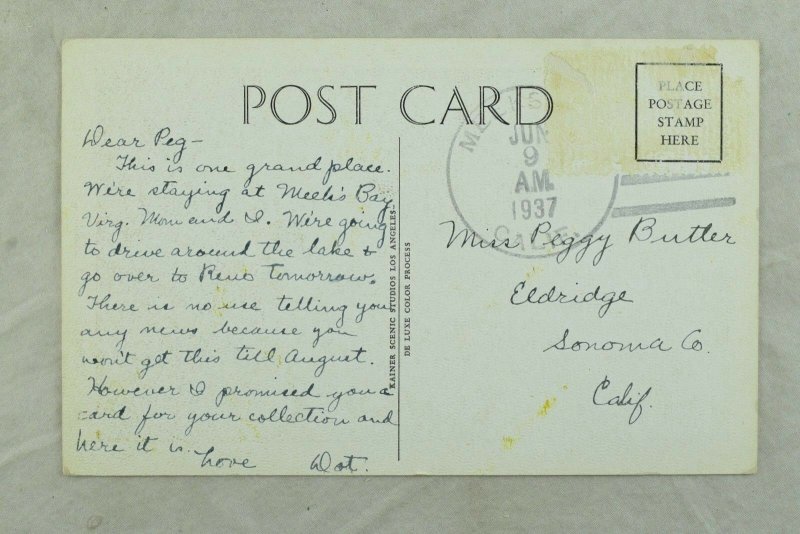 POST CARD
PLACE
POSTAGE
STAMP
HERE
JUN
9
AM
1937
CALIF.
Dear Peg-
This is one grand place.
We're staying at Meek's Bay
Virg. Mom and I. We're going
to drive around the lake &
go over to Reno Tomorrow.
There is no use telling you
any news because you
won't get this till August.
However I promised you a
card for your collection and
here it is.
Love Dot.
KAINER SCENIC STUDIOS LOS ANGELES-
DE LUXE COLOR PROCESS
Miss Peggy Butler
Eldridge
Sonoma Co.
Calif.